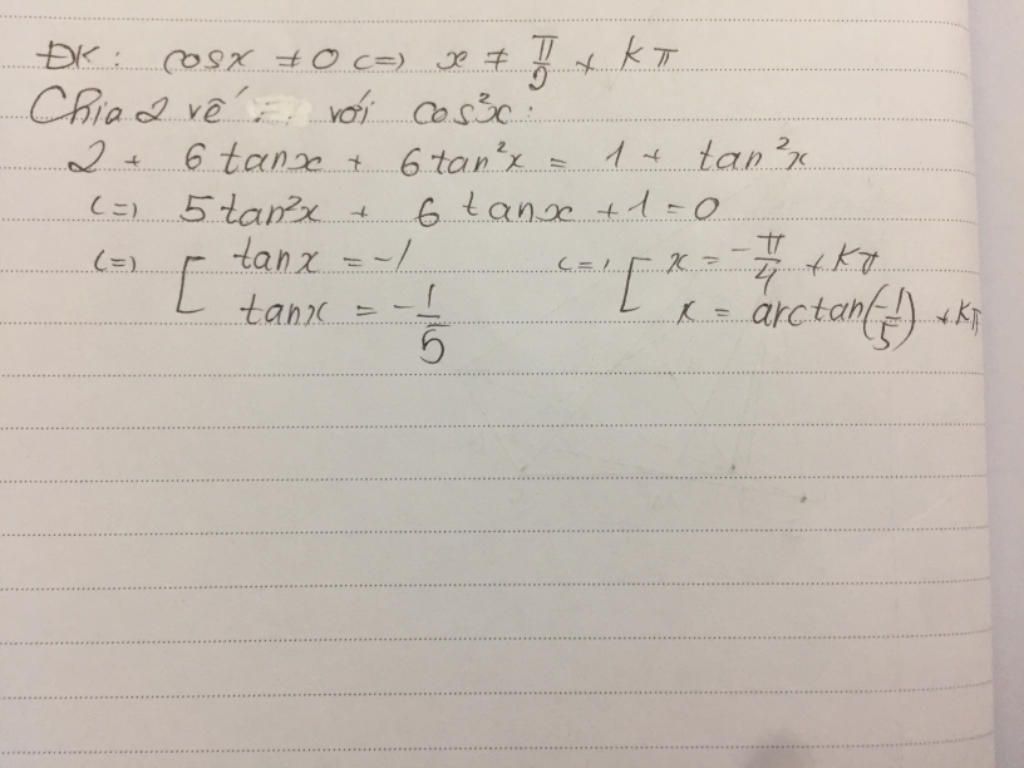 ĐK: cosx ≠ 0 <=> x ≠ π/2 + kπ
Chia 2 vế với cos²x:
2 + 6 tanx + 6 tan²x = 1 + tan²x
<=> 5 tan²x + 6 tanx + 1 = 0
<=> [ tanx = -1 <=> [ x = -π/4 + kπ
tanx = -1/5 x = arctan(-1/5) + kπ